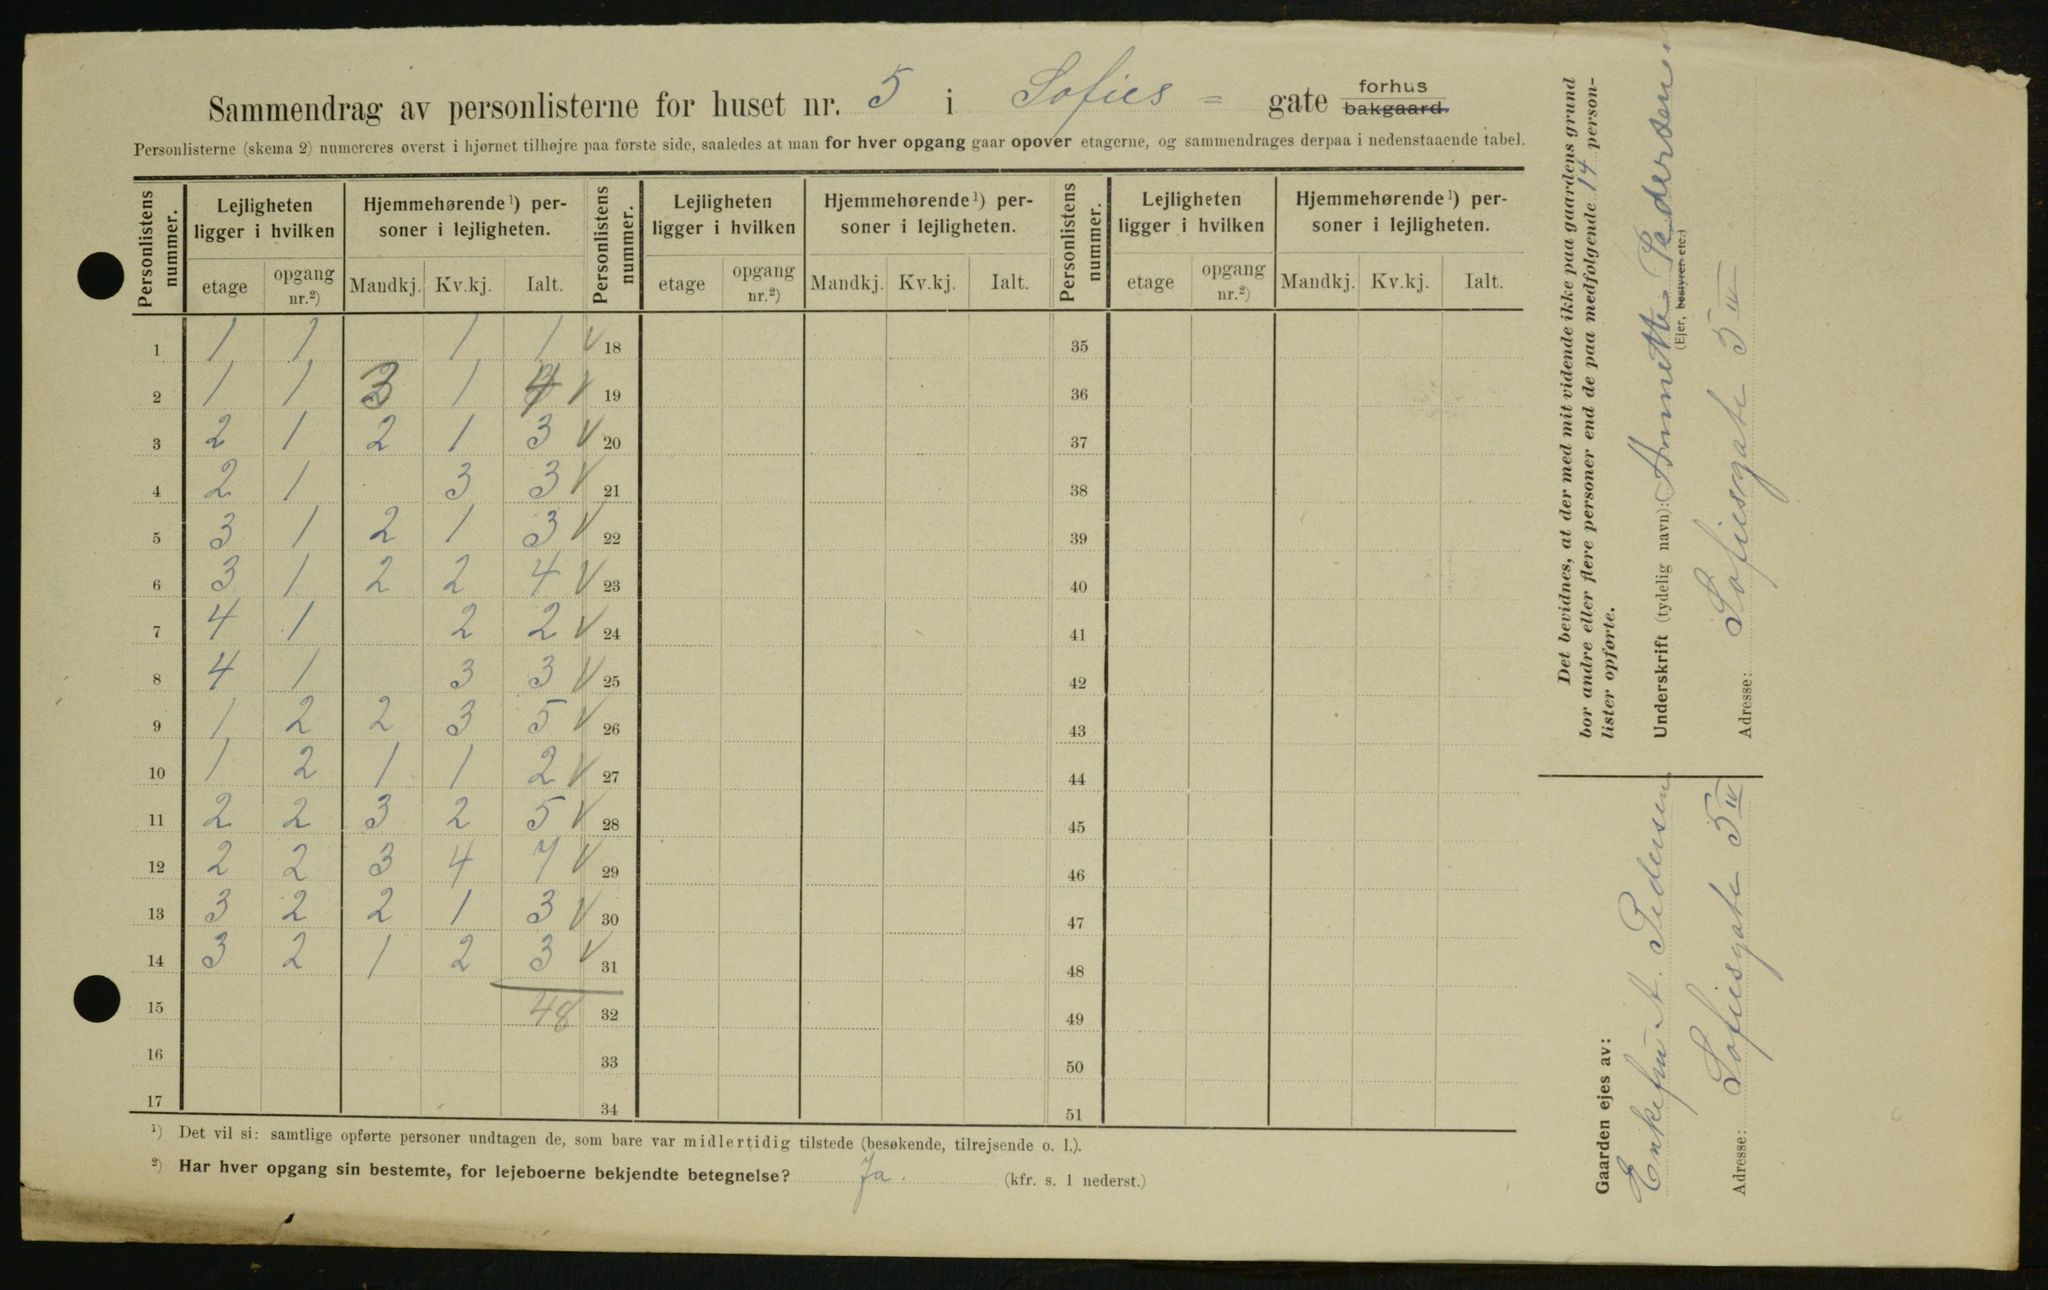 Sammendrag av personlisterne for huset nr. 5 i Sofies = gate forhus bakgaard.
Personlisterne (skema 2) numereres øverst i hjørnet tilhøjre paa første side, saaledes at man for hver opgang gaar opover etagerne, og sammendrages derpaa i nedenstaaende tabel.
Personlistens nummer. Lejligheten ligger i hvilken Hjemmehørende ¹) personer i lejligheten. Personlistens nummer. Lejligheten ligger i hvilken Hjemmehørende ¹) personer i lejligheten. Personlistens nummer. Lejligheten ligger i hvilken Hjemmehørende ¹) personer i lejligheten.
etage opgang nr.²) Mandkj. Kv.kj. Ialt. etage opgang nr.²) Mandkj. Kv.kj. Ialt. etage opgang nr.²) Mandkj. Kv.kj. Ialt.
1 1 1 1 1 √ 18 35
2 1 1 3 1 4 √ 19 36
3 2 1 2 1 3 √ 20 37
4 2 1 3 3 √ 21 38
5 3 1 2 1 3 √ 22 39
6 3 1 2 2 4 √ 23 40
7 4 1 2 2 √ 24 41
8 4 1 3 3 √ 25 42
9 1 2 2 3 5 √ 26 43
10 1 2 1 1 2 √ 27 44
11 2 2 3 2 5 √ 28 45
12 2 2 3 4 7 √ 29 46
13 3 2 2 1 3 √ 30 47
14 3 2 1 2 3 √ 31 48
15 48 32 49
16 33 50
17 34 51
¹) Det vil si: samtlige opførte personer undtagen de, som bare var midlertidig tilstede (besøkende, tilrejsende o. l.).
²) Har hver opgang sin bestemte, for lejeboerne bekjendte betegnelse? Ja. (kfr. s. 1 nederst.)
Det bevidnes, at der med mit vidende ikke paa gaardens grund
bor andre eller flere personer end de paa medfølgende 14 person-
lister opførte.
Underskrift (tydelig navn): Annette Pedersen
(Ejer, bestyrer etc.)
Adresse: Sofiesgate 5 IV
Gaarden ejes av:
Enkefru A. Pedersen
Adresse: Sofiesgate 5 IV